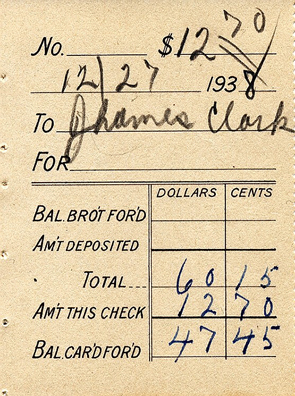 No. $12 70
12/27 1938
To Jhames Clark
For
DOLLARS CENTS
BAL. BRO'T FOR'D
AM'T DEPOSITED
TOTAL 60 15
AM'T THIS CHECK 12 70
BAL. CAR'D FOR'D 47 45